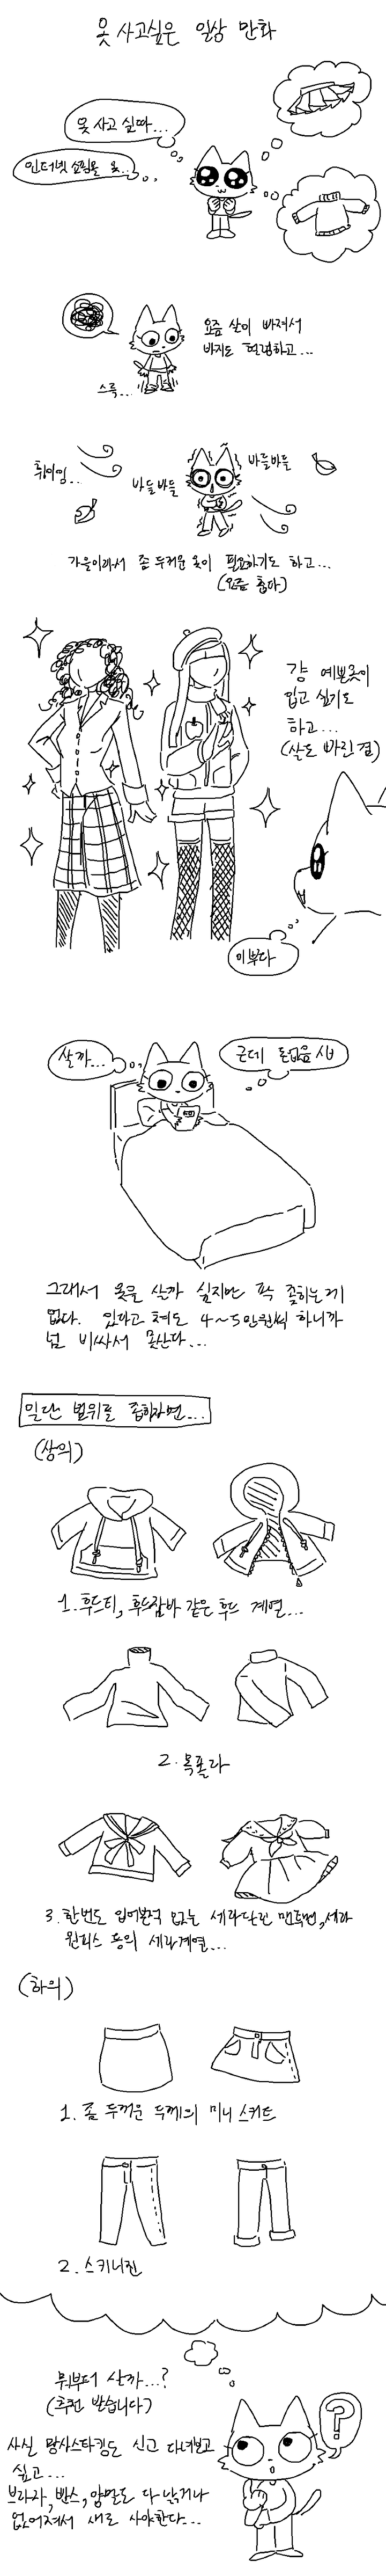 옷 사고싶은 일상 만화
옷 사고 싶따...
인터넷 쇼핑몰 옷...
요즘 살이 빠져서
바지도 헐렁하고...
스륵...
휘이잉...
바들바들
바들바들
가을이라서 좀 두꺼운 옷이 필요하기도 하고...
(요즘 춥다)
걍 예쁜옷이
입고 싶기도
하고...
(살도 빠진 겸)
이뿌다
살까...
근데 돈없음 시바
그래서 옷을 살까 싶지만 팍 꽂히는게
없다. 있다고 쳐도 4~5만원씩 하니까
넘 비싸서 못산다...
일단 범위를 좁히자면...
(상의)
1. 후드티, 후드잠바 같은 후드 계열...
2. 목폴라
3. 한번도 입어본적 없는 세라달린 맨투맨, 세라
원피스 등의 세라계열...
(하의)
1. 좀 두꺼운 두께의 미니 스커트
2. 스키니진
뭐부터 살까...?
(추천 받습니다)
사실 망사스타킹도 신고 다녀보고
싶고...
브라자, 빤스, 양말도 다 낡거나
없어져서 새로 사야한다...